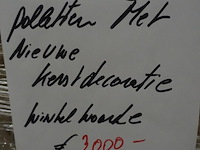 palletten Met
Nieuwe
kerstdecoratie
winkelwaarde
€ 3000-